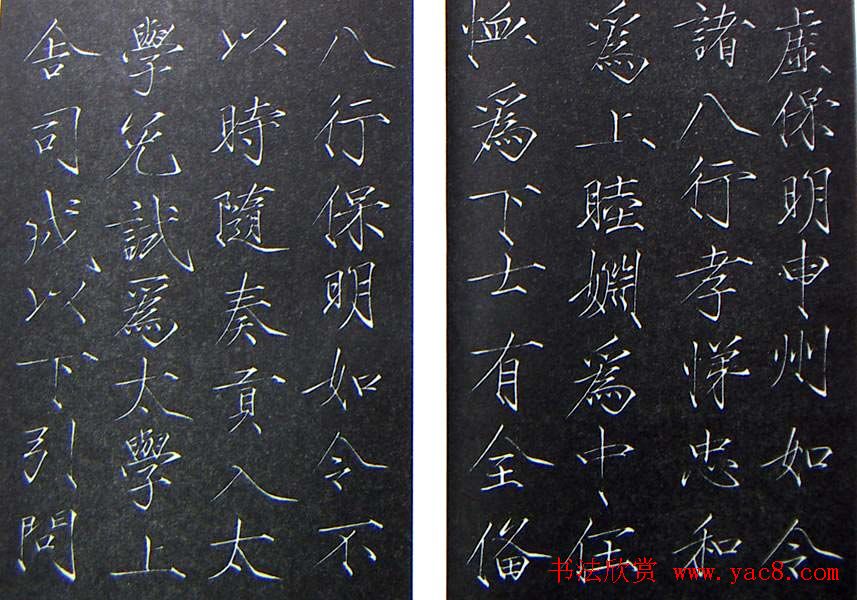 虛保明申州如令
諸八行孝悌忠和
爲上睦婣爲中任
恤爲下士有全備
八行保明如令不
以時隨奏貢入太
學免試爲太學上
舍司成以下引問
书法欣赏 www.yac8.com